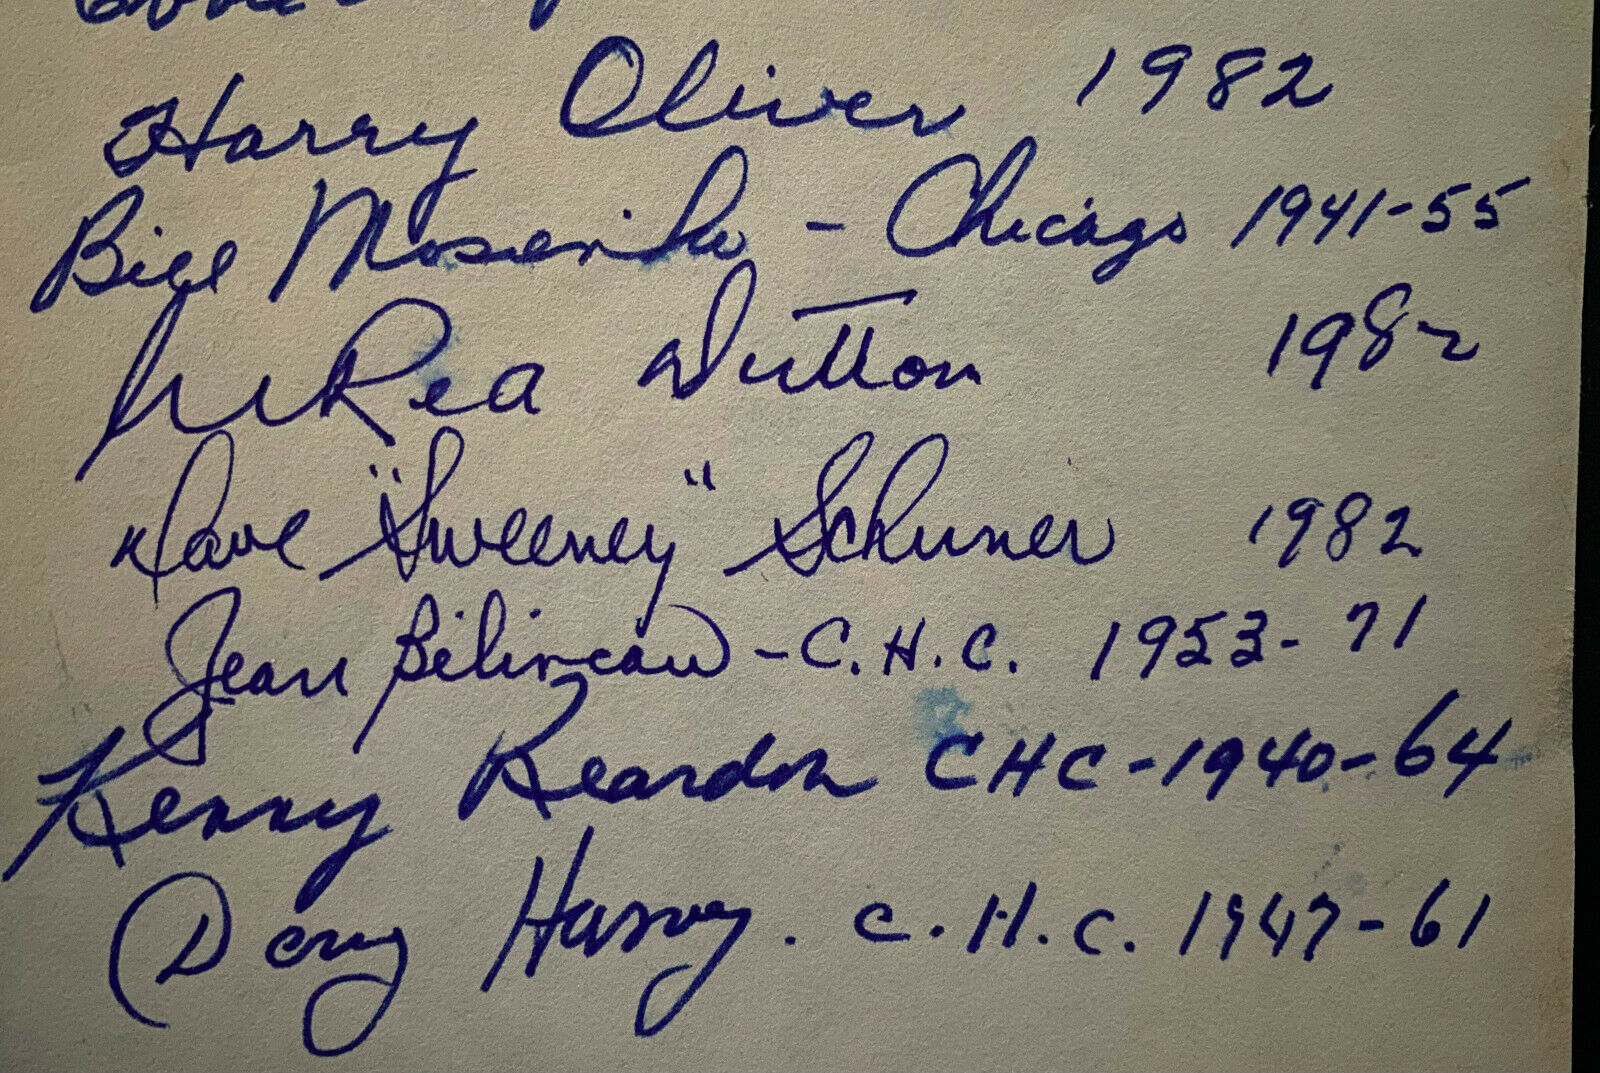 Harry Oliver 1982
Bill Mosienko - Chicago 1941-55
M Rea Dutton 1982
Dave "Sweeney" Schriner 1982
Jean Béliveau - C.H.C. 1953-71
Kenny Reardon CHC-1940-64
Doug Harvey. C.H.C. 1947-61